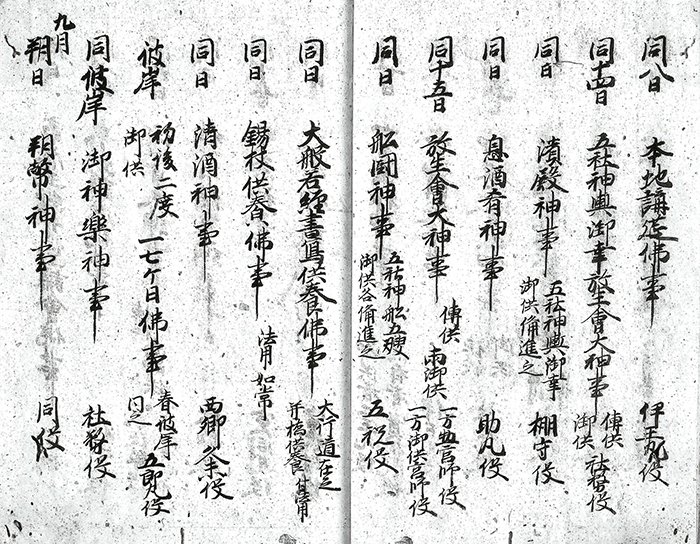 同八日 本地講延佛事 伊王丸役
同十四日 五社神輿御幸放生會大神事 傳供 御供 社務役
同日 濱殿神事 五社神輿御幸 御供備進之 棚守役
同日 息酒肴神事 助九役
同十五日 放生會大神事 傳供 両御供 一方宮師役 一方御供宮師役
同日 船図神事 五社神船五艘 御供各備進之 五祝役
同日 大般若經書寫供養佛事 大行道在之
同日 錫杖供養佛事 法用如常
同日 清酒神事 西郷役
彼岸 初後二度御供 一七ケ日佛事 春彼岸同之 五郎丸役
同彼岸 御神樂神事 社務役
九月
朔日 朔幣神事 同役